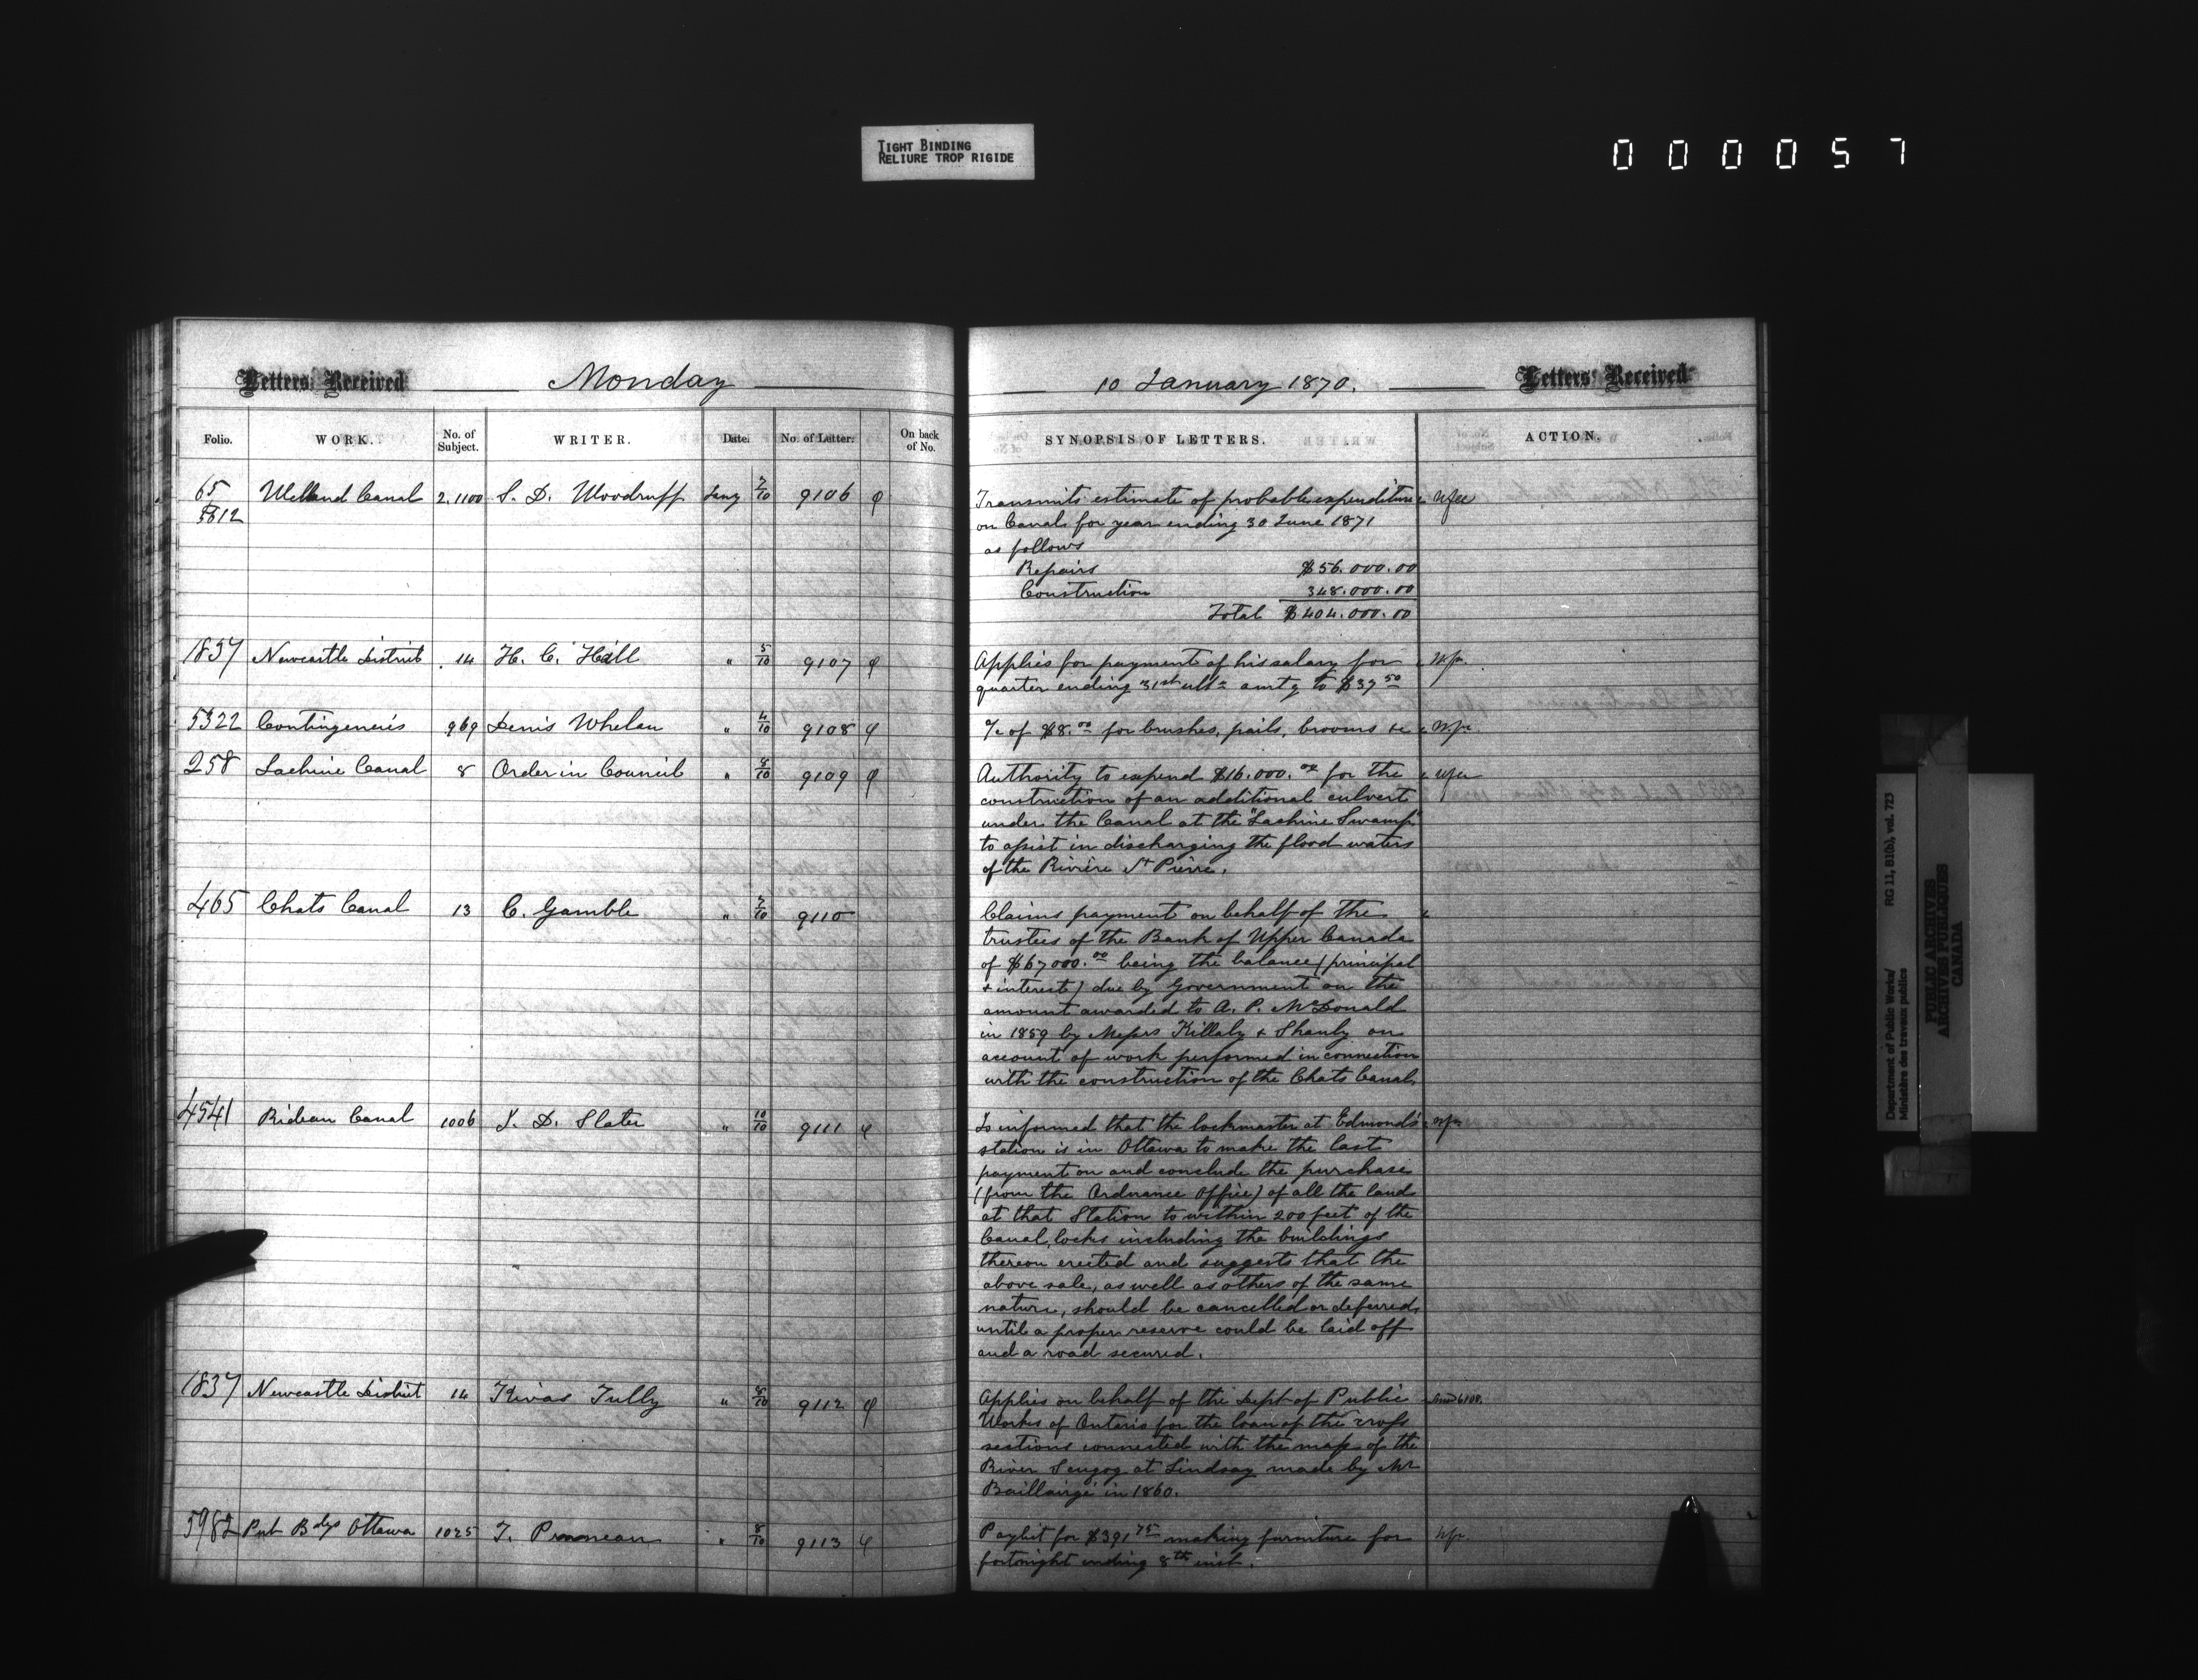 TIGHT BINDING
RELIURE TROP RIGIDE
000057
Letters Received Monday
Folio. WORK. No. of Subject. WRITER. Date. No. of Letter. On back of No.
65 5812 Welland Canal 2.1100 S. D. Woodruff Jany 7/10 9106
1837 Newcastle District 14 H. C. Hall " 5/10 9107
5322 Contingencies 969 Denis Whelan " 4/10 9108
258 Lachine Canal 8 Order in Council " 8/10 9109
465 Chats Canal 13 C. Gamble " 7/10 9110
4541 Rideau Canal 1006 J. D. Slater " 10/10 9111
1837 Newcastle District 14 Kivas Tully " 8/10 9112
5982 Pub Bdgs Ottawa 1025 T. " 8/10 9113
10 January 1870. Letters Received
SYNOPSIS OF LETTERS. ACTION.
Transmits estimate of probable expenditure
on Canal for year ending 30 June 1871
as follows
Repairs $56.000.00
Construction 348.000.00
Total $404.000.00
Applies for payment of his salary for
quarter ending 31st ulto amtg to $37 50
a/c of $8.00 for brushes, pails, brooms &c
Authority to expend $16.000.00 for the
construction of an additional culvert
under the Canal at the "Lachine Swamp"
to assist in discharging the flood waters
of the Rivière St Pierre.
Claims payment on behalf of the
trustees of the Bank of Upper Canada
of $67000.00 being the balance (principal
& interest) due by Government on the
amount awarded to A. P. McDonald
in 1859 by Messrs Killaly & Shanly on
account of work performed in connection
with the construction of the Chats Canal.
Is informed that the lockmaster at Edmond's
station is in Ottawa to make the last
payment on and conclude the purchase
(from the Ordnance Office) of all the land
at that Station to within 200 feet of the
Canal, locks including the buildings
thereon erected and suggests that the
above sale, as well as others of the same
nature, should be cancelled or deferred,
until a proper reserve could be laid off
and a road secured.
Applies on behalf of the Dept of Public 6108.
Works of Ontario for the loan of the cross
sections connected with the map of the
River Scugog at Lindsay made by Mr
Baillairgé in 1860.
Paylist for $391 75 making furniture for
fortnight ending 8th inst.
Department of Public Works/ RG 11, B1(b), vol. 723
Ministère des travaux publics
PUBLIC ARCHIVES
ARCHIVES PUBLIQUES
CANADA